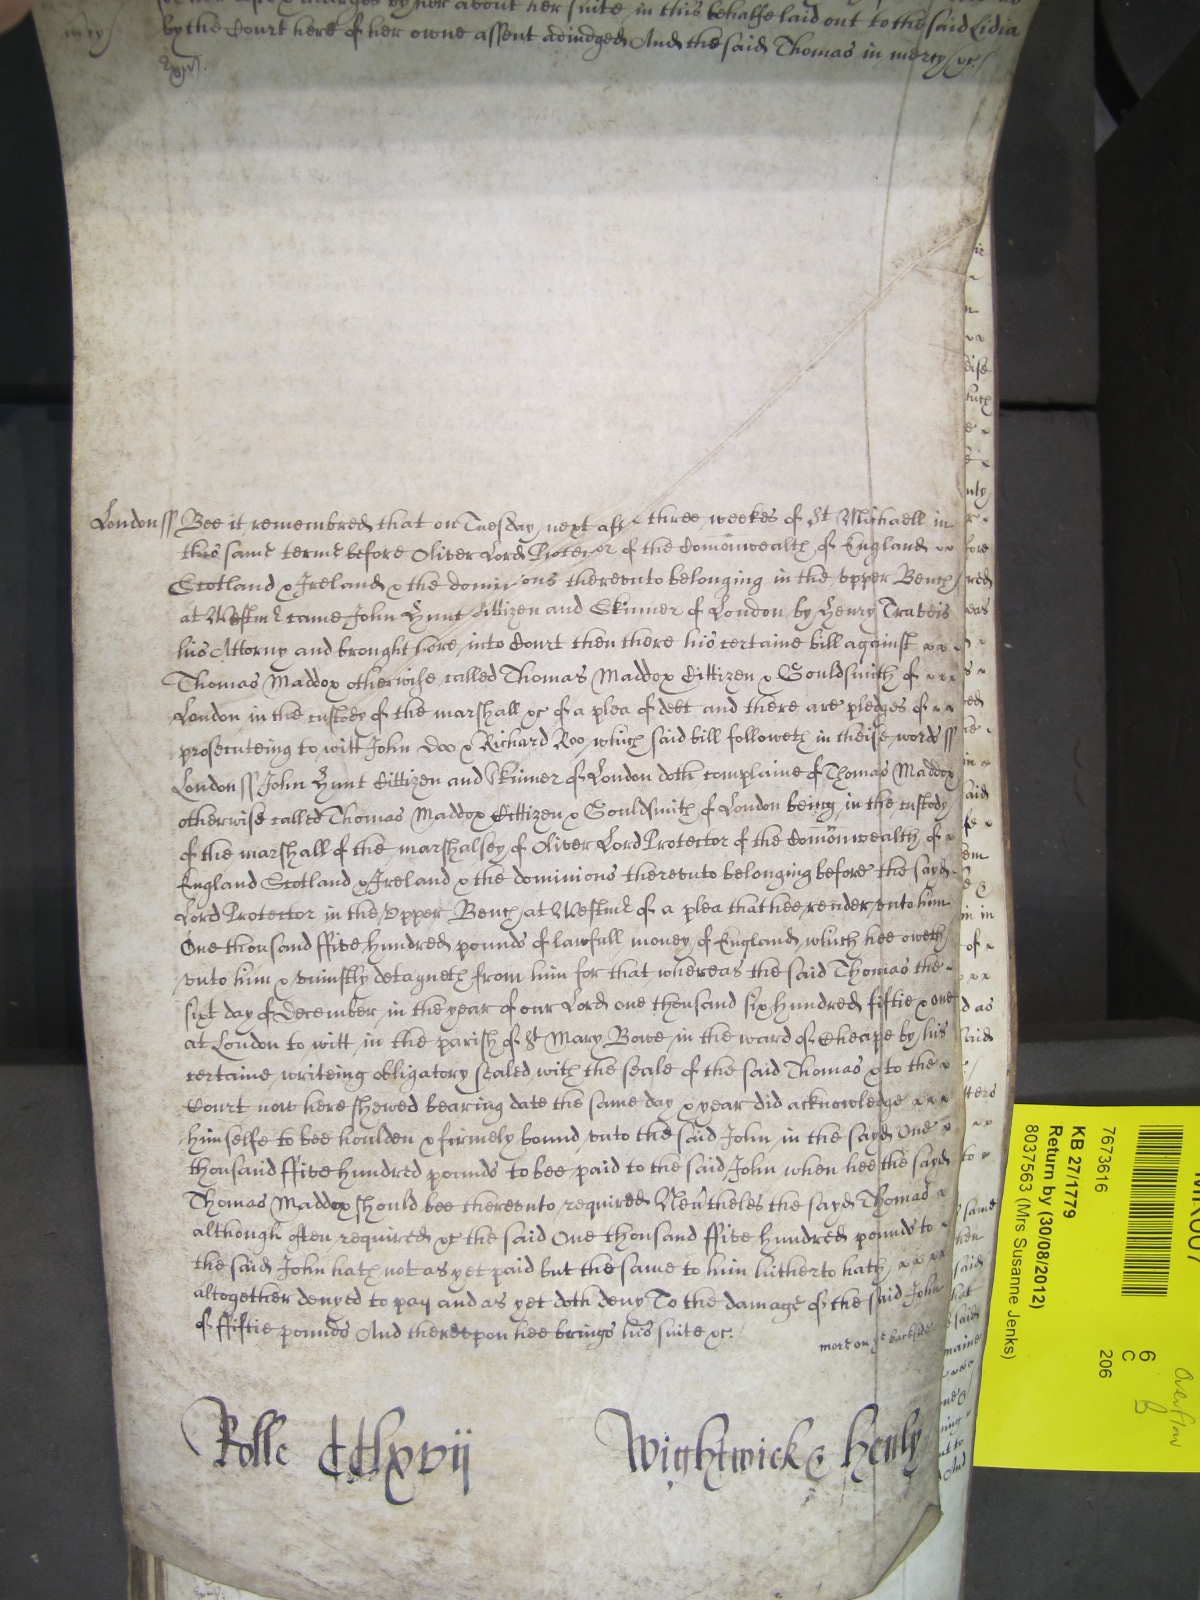 by her about her suite in this behalfe laid out to the said Lidia
by the Court here of her owne assent adiudged And the said Thomas in mercy &c
London ss Bee it remembred that on Tuesday next aft three weekes of St Michaell in
this same terme before Oliver Lord Protector of the Comonwealth of England
Scotland & Ireland & the dominions therevnto belonging in the vpper Bench
at Westmr came John Hunt Cittizen and Skinner of London by Henry Travers
his Attorny and brought here into Court then there his certaine bill against
Thomas Maddox otherwise called Thomas Maddox Cittizen & Gouldsmith of
London in the custody of the marshall &c of a plea of debt and there are pledges of
prosecuteing to witt John Doo & Richard Roo which said bill followeth in theise words ss
London ss John Hunt Cittizen and Skinner of London doth complaine of Thomas Maddox
otherwise called Thomas Maddox Cittizen & Gouldsmith of London being in the custody
of the marshall of the marshalsey of Oliver Lord Protector of the Comonwealth of
England Scotland & Ireland & the dominions therevnto belonging before the sayd
Lord Protector in the Vpper Bench at Westmr of a plea that hee render vnto him
One thousand ffive hundred pounds of lawfull money of England which hee oweth
vnto him & vniustly detayneth from him for that whereas the said Thomas the
sixt day of December in the year of our Lord one thousand six hundred fiftie & one
at London to witt in the parish of St Mary Bowe in the ward of Cheape by his
certaine writeing obligatory sealed with the seale of the said Thomas & to the
Court now here shewed bearing date the same day & year did acknowledge
himselfe to bee houlden & firmely bound vnto the said John in the sayd One
thousand ffive hundred pounds to bee paid to the said John when hee the sayd
Thomas Maddox should bee therevnto required Nevtheles the sayd Thomas
although often required &c the said One thousand ffive hundred pounds to
the said John hath not as yet paid but the same to him hitherto hath
altogether denyed to pay and as yet doth deny To the damage of the said John
of ffiftie pounds And therevpon hee brings his suite &c.
more on ye backside
Rolle CClxvij
Wightwick & Henly
7673616
KB 27/1779
Return by (30/08/2012)
8037563 (Mrs Susanne Jenks)
6
C
206
Overflow